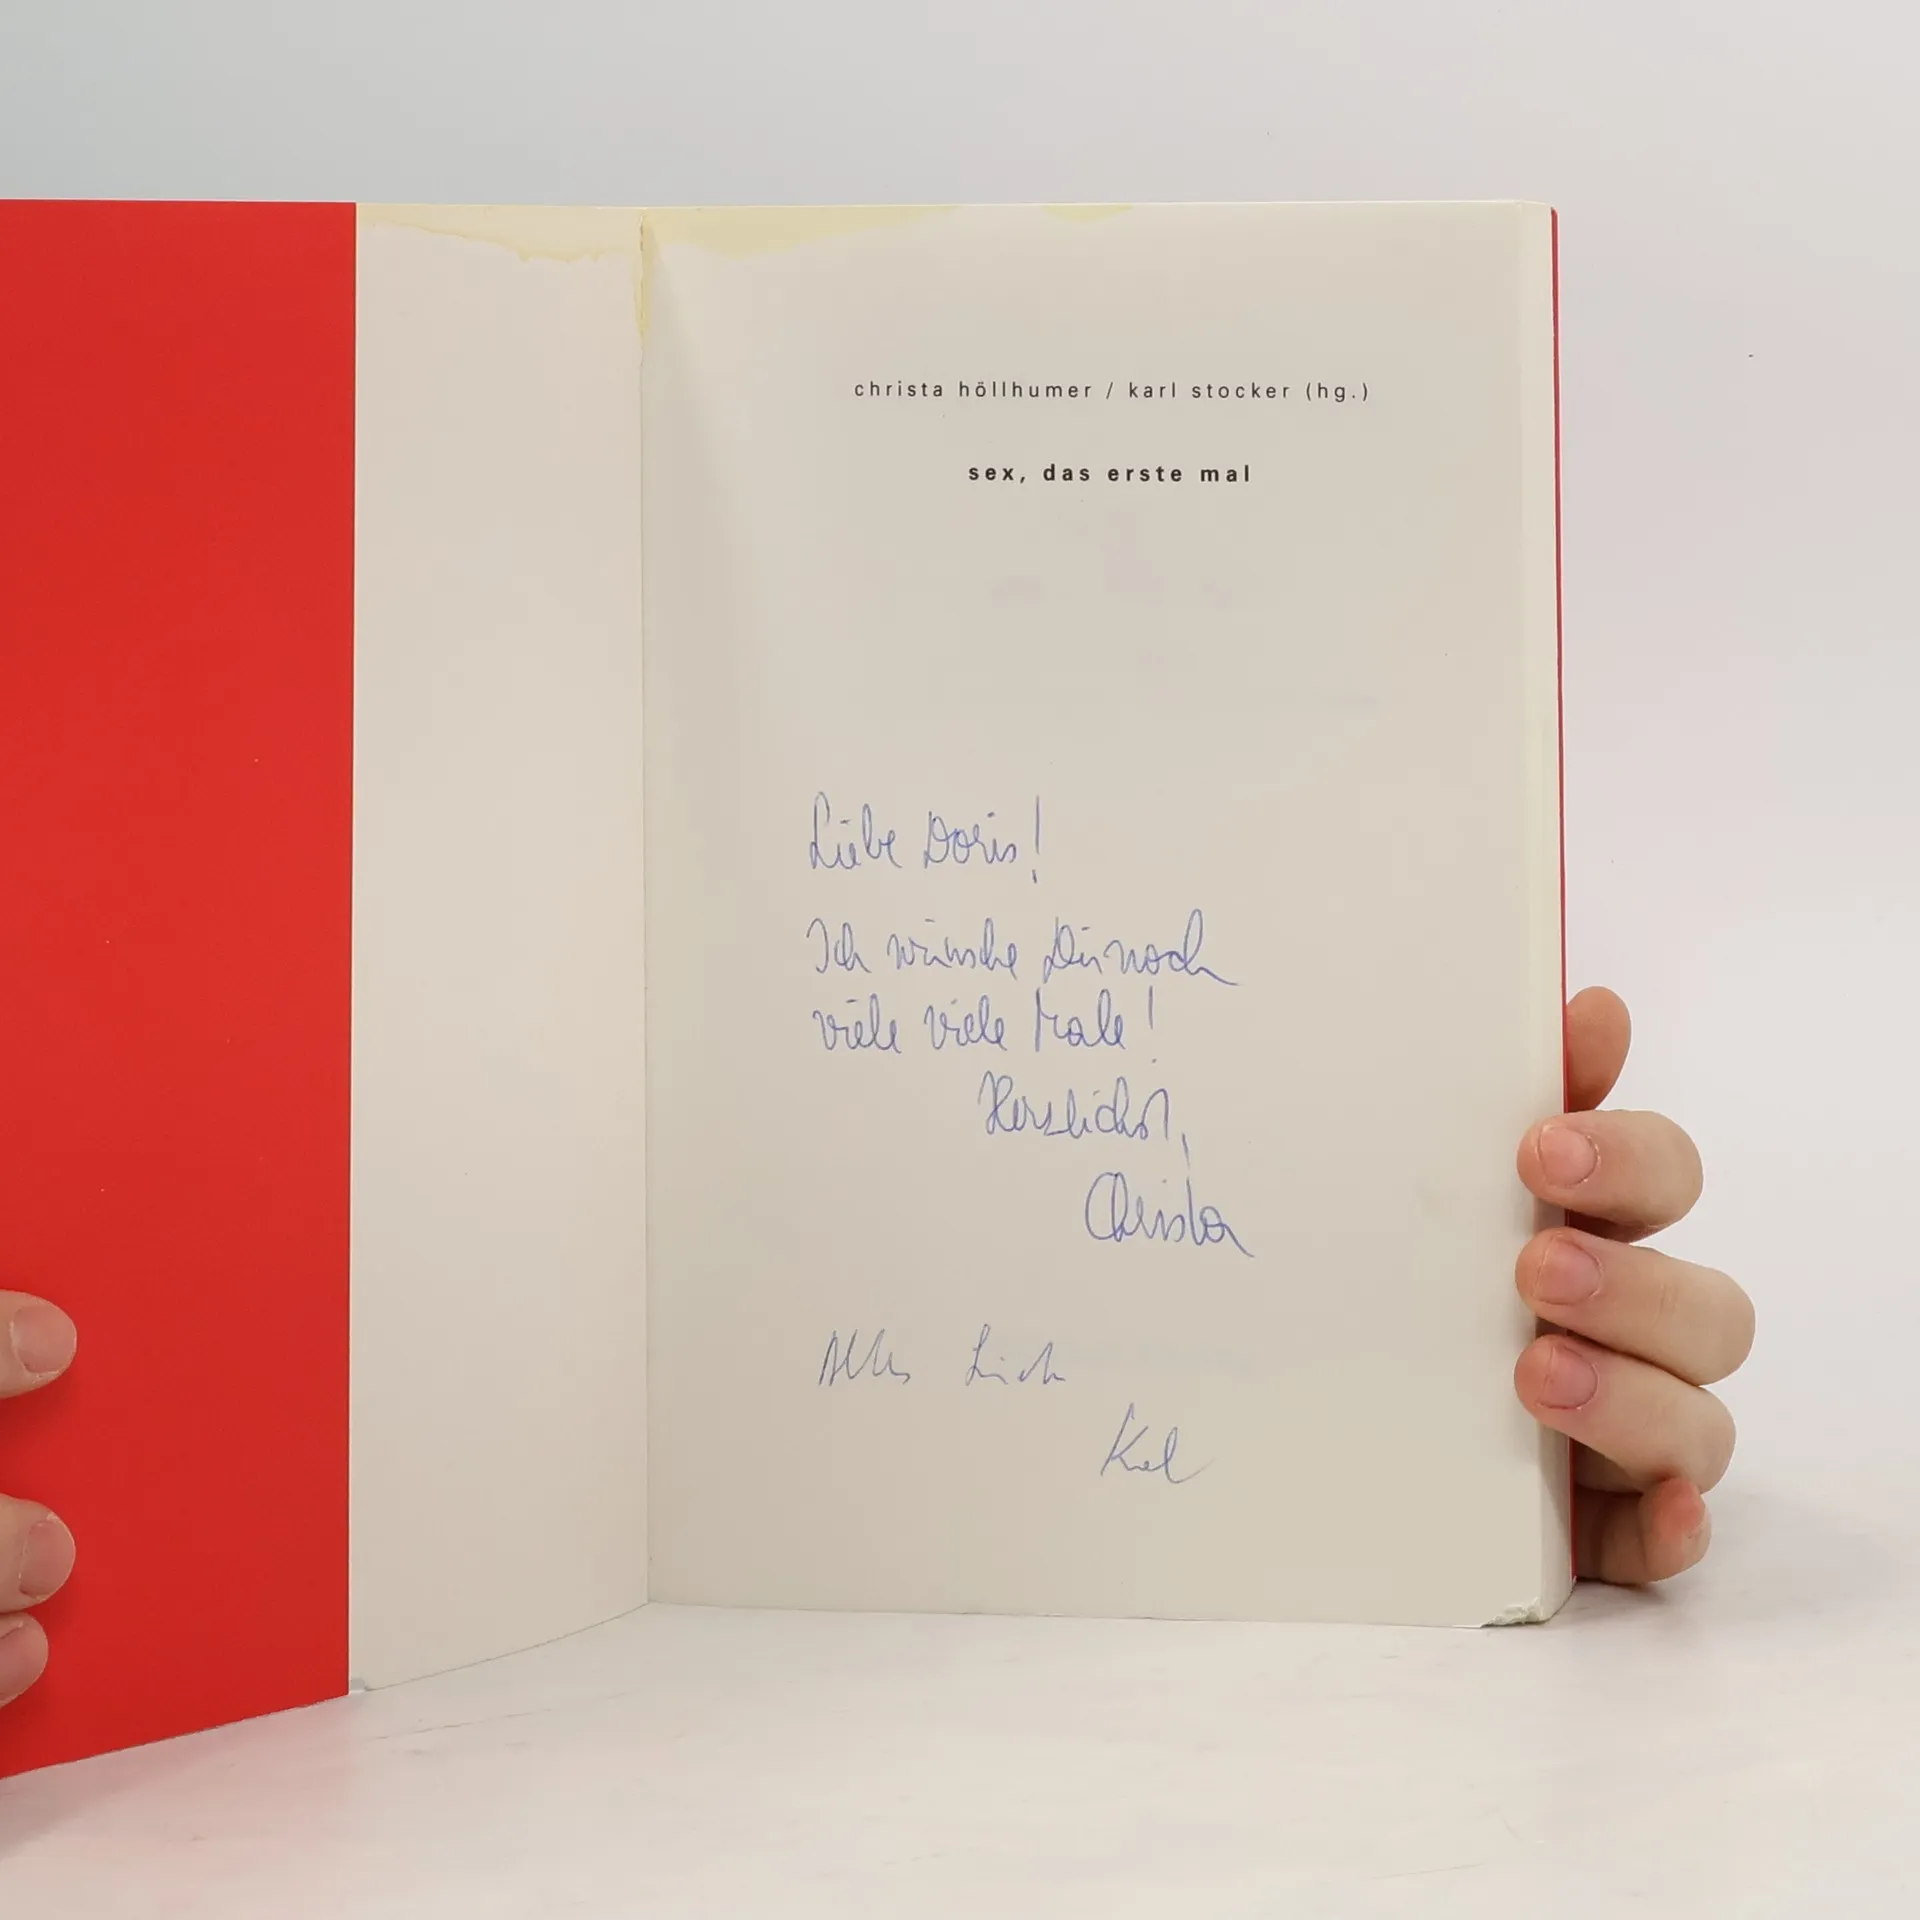 christa höllhumer / karl stocker (hg.)
sex, das erste mal
Liebe Doris!
Ich wünsche Dir noch
viele viele Male!
Herzlichst,
Christa
Alles